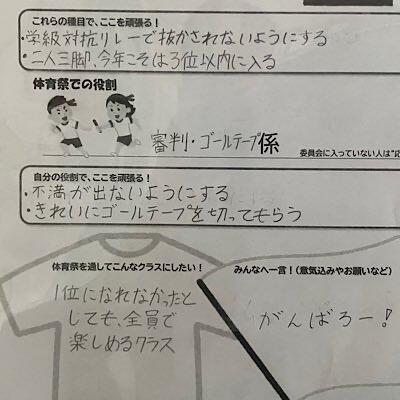 これらの種目で、ここを頑張る！
・学級対抗リレーで抜かされないようにする
・二人三脚、今年こそは3位以内に入る
体育祭での役割
審判・ゴールテープ係
委員会に入っていない人は"応
自分の役割で、ここを頑張る！
・不満が出ないようにする
・きれいにゴールテープを切ってもらう
体育祭を通してこんなクラスにしたい！
1位になれなかったと
しても、全員で
楽しめるクラス
みんなへ一言！（意気込みやお願いなど）
がんばろー！